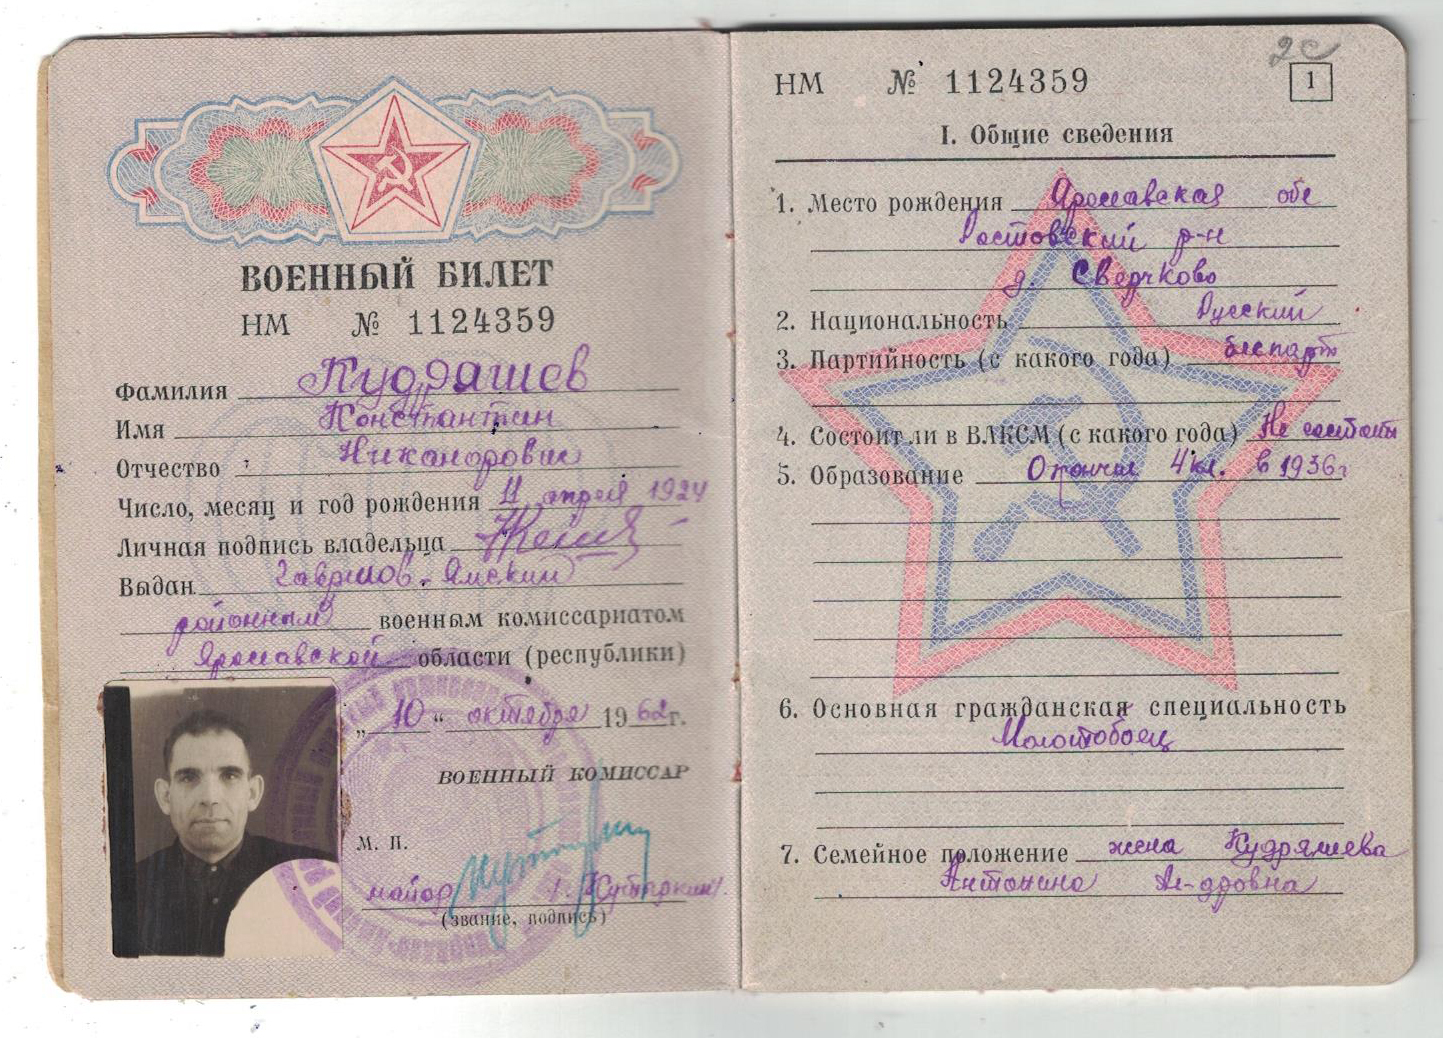 ВОЕННЫЙ БИЛЕТ
НМ № 1124359
Фамилия Кудряшев
Имя Константин
Отчество Никанорович
Число, месяц и год рождения 11 апреля 1924
Личная подпись владельца
Выдан Гаврилов-Ямским
районным военным комиссариатом
Ярославской области (республики)
„10“ октября 1962 г.
ВОЕННЫЙ КОМИССАР
М. П.
майор
(звание, подпись)
2с
НМ № 1124359
1
I. Общие сведения
1. Место рождения Ярославская обл
Ростовский р-н
д. Сверчково
2. Национальность Русский
3. Партийность (с какого года) беспарт
4. Состоит ли в ВЛКСМ (с какого года) Не состоит
5. Образование Окончил 4 кл. в 1936 г
6. Основная гражданская специальность
Молотобоец
7. Семейное положение жена Кудряшева
Антонина Ал-дровна